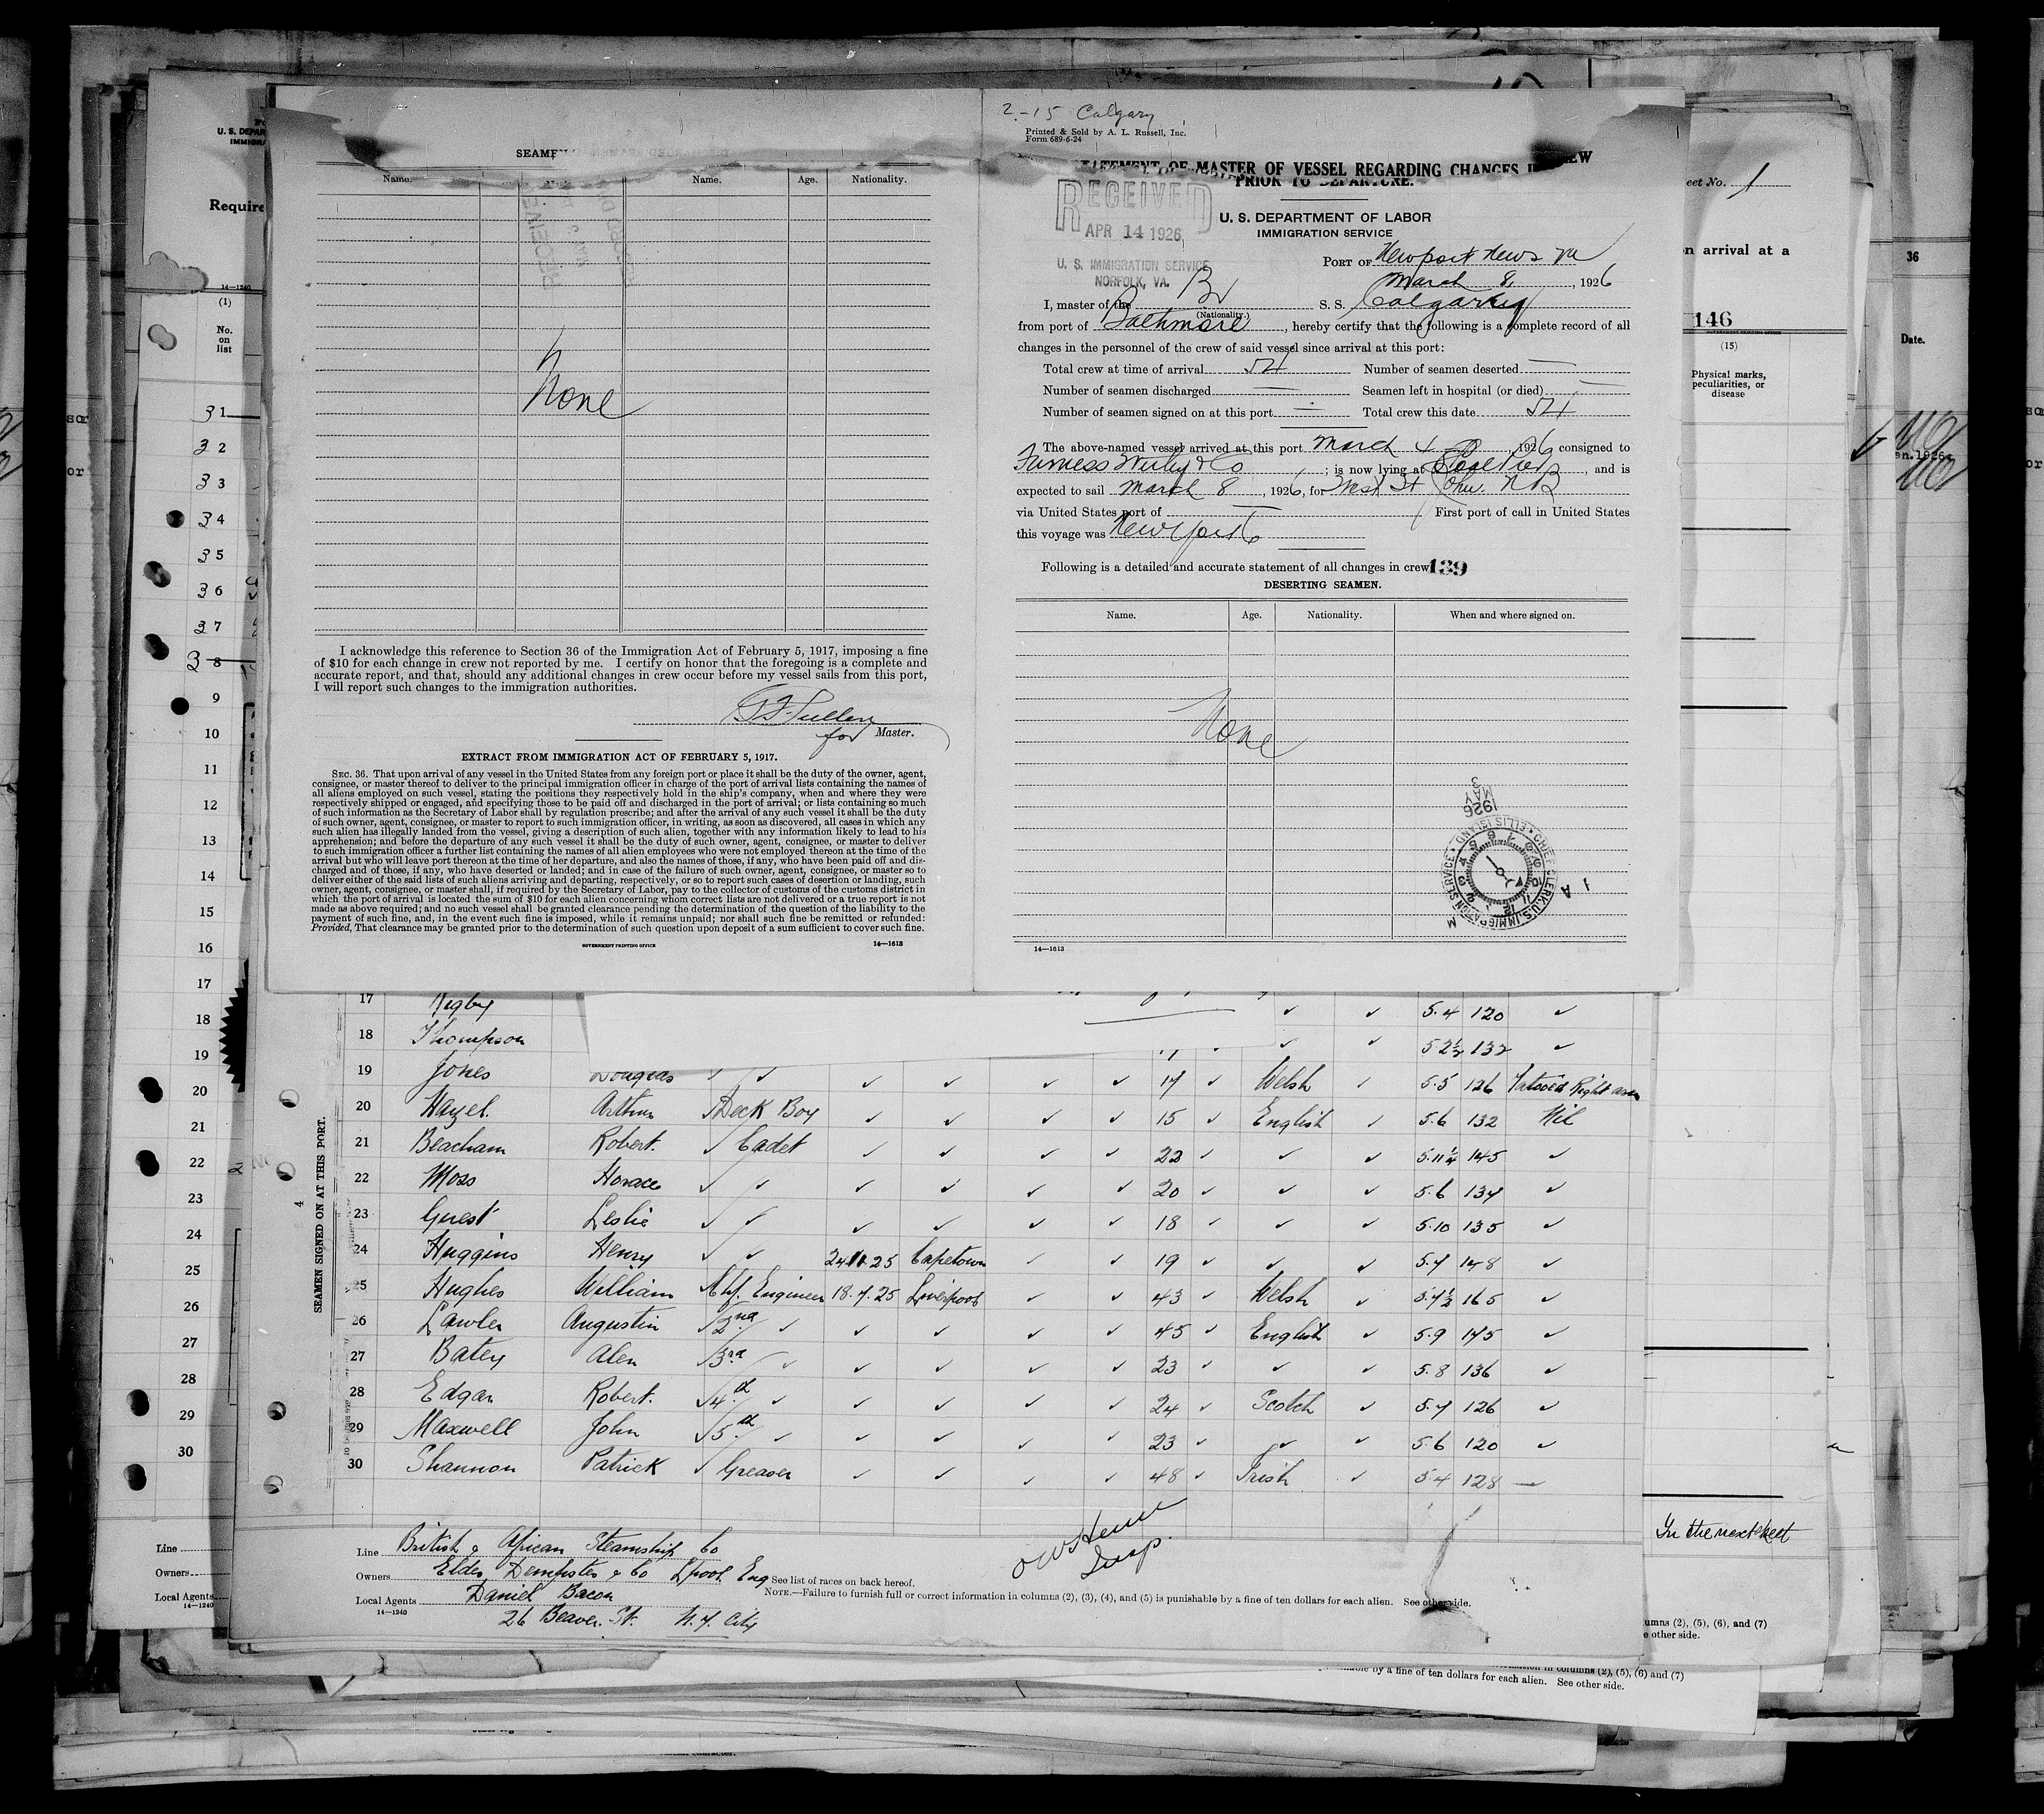 2-15 Calgary
Printed & Sold by A. L. Russell, Inc.
Form 689-6-24
STATEMENT OF MASTER OF VESSEL REGARDING CHANGES IN CREW
PRIOR TO DEPARTURE.
RECEIVED
APR 14 1926
U. S. IMMIGRATION SERVICE
NORFOLK, VA.
U. S. DEPARTMENT OF LABOR
IMMIGRATION SERVICE
PORT OF Newport News Va
March 8, 1926
I, master of the Br S. S. Calgary
(Nationality.)
from port of Baltimore, hereby certify that the following is a complete record of all
changes in the personnel of the crew of said vessel since arrival at this port:
Total crew at time of arrival 54 Number of seamen deserted —
Number of seamen discharged — Seamen left in hospital (or died) —
Number of seamen signed on at this port — Total crew this date 54
The above-named vessel arrived at this port March 4, 1926 consigned to
Furness Withy & Co; is now lying at, and is
expected to sail March 8, 1926, for West St John N B
via United States port of — First port of call in United States
this voyage was New York
Following is a detailed and accurate statement of all changes in crew 139
DESERTING SEAMEN.
Name. Age. Nationality. When and where signed on.
None
MAY 3
1926
CHIEF CLERK U.S. IMMIGRATION SERVICE ELLIS ISLAND
14—1613
SEAMEN
Name. Name. Age. Nationality.
None
I acknowledge this reference to Section 36 of the Immigration Act of February 5, 1917, imposing a fine
of $10 for each change in crew not reported by me. I certify on honor that the foregoing is a complete and
accurate report, and that, should any additional changes in crew occur before my vessel sails from this port,
I will report such changes to the immigration authorities.
for Master.
EXTRACT FROM IMMIGRATION ACT OF FEBRUARY 5, 1917.
SEC. 36. That upon arrival of any vessel in the United States from any foreign port or place it shall be the duty of the owner, agent,
consignee, or master thereof to deliver to the principal immigration officer in charge of the port of arrival lists containing the names of
all aliens employed on such vessel, stating the positions they respectively hold in the ship's company, when and where they were
respectively shipped or engaged, and specifying those to be paid off and discharged in the port of arrival; or lists containing so much
of such information as the Secretary of Labor shall by regulation prescribe; and after the arrival of any such vessel it shall be the duty
of such owner, agent, consignee, or master to report to such immigration officer, in writing, as soon as discovered, all cases in which any
such alien has illegally landed from the vessel, giving a description of such alien, together with any information likely to lead to his
apprehension; and before the departure of any such vessel it shall be the duty of such owner, agent, consignee, or master to deliver
to such immigration officer a further list containing the names of all alien employees who were not employed thereon at the time of the
arrival but who will leave port thereon at the time of her departure, and also the names of those, if any, who have been paid off and dis-
charged and of those, if any, who have deserted or landed; and in case of the failure of such owner, agent, consignee, or master so to
deliver either of the said lists of such aliens arriving and departing, respectively, or so to report such cases of desertion or landing, such
owner, agent, consignee, or master shall, if required by the Secretary of Labor, pay to the collector of customs of the customs district in
which the port of arrival is located the sum of $10 for each alien concerning whom correct lists are not delivered or a true report is not
made as above required; and no such vessel shall be granted clearance pending the determination of the question of the liability to the
payment of such fine, and, in the event such fine is imposed, while it remains unpaid; nor shall such fine be remitted or refunded:
Provided, That clearance may be granted prior to the determination of such question upon deposit of a sum sufficient to cover such fine.
GOVERNMENT PRINTING OFFICE 14—1613
SEAMEN SIGNED ON AT THIS PORT.
17 Rigby 5.4 120
18 Thompson 5 2½ 132
19 Jones Douglas 17 Welsh 5.5 126 Tatooed Right arm
20 Hazel Arthur Deck Boy 15 English 5.6 132 Nil
21 Beacham Robert. Cadet 22 5.11¼ 145
22 Moss Horace 20 5.6 134
23 Guest Leslie 18 5.10 135
24 Huggins Henry 24.11.25 Capetown 19 5.7 148
25 Hughes William Chf. Engineer 18.7.25 Liverpool 43 Welsh 5.7½ 165
26 Lawler Augustin 2nd 45 English 5.9 145
27 Batey Alen 3rd 23 5.8 136
28 Edgar Robert. 4th 24 Scotch 5.7 126
29 Maxwell John 5th 23 5.6 120
30 Shannon Patrick Greaser 48 Irish 5.4 128 —
Line British & African Steamship Co
Owners Elder Dempster & Co Lpool Eng
Local Agents Daniel Bacon
14—1240
26 Beaver St. N. Y. City
See list of races on back hereof.
NOTE.—Failure to furnish full or correct information in columns (2), (3), (4), and (5) is punishable by a fine of ten dollars for each alien. See other side.
Insp.
U. S. DEPAR
IMMIGRA
Require
14—1240
(1)
No.
on
list
31
32
33
34
35
36
37
38
9
10
11
12
13
14
15
16
17
18
19
20
21
22
23
24
25
26
27
28
29
30
Line
Owners
Local Agents
14—1240
eet No. 1
n arrival at a
146
(15)
Physical marks,
peculiarities, or
disease
36
Date.
an. 1926
In the next sheet
umns (2), (5), (6), and (7)
e other side.
information in columns (2), (5), (6) and (7)
able by a fine of ten dollars for each alien. See other side.